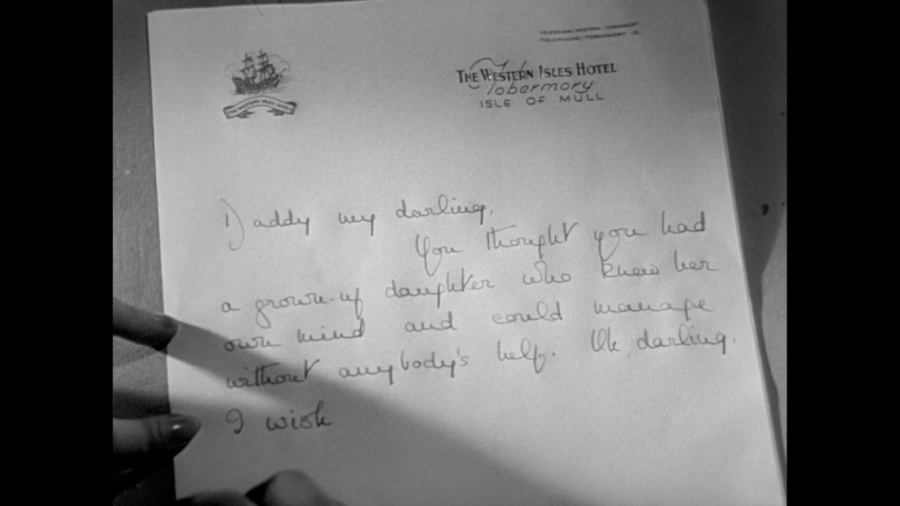 THE WESTERN ISLES HOTEL
Tobermory
ISLE OF MULL
Daddy my darling,
You thought you had
a grown-up daughter who knew her
own mind and could manage
without anybody's help. Oh, darling.
I wish